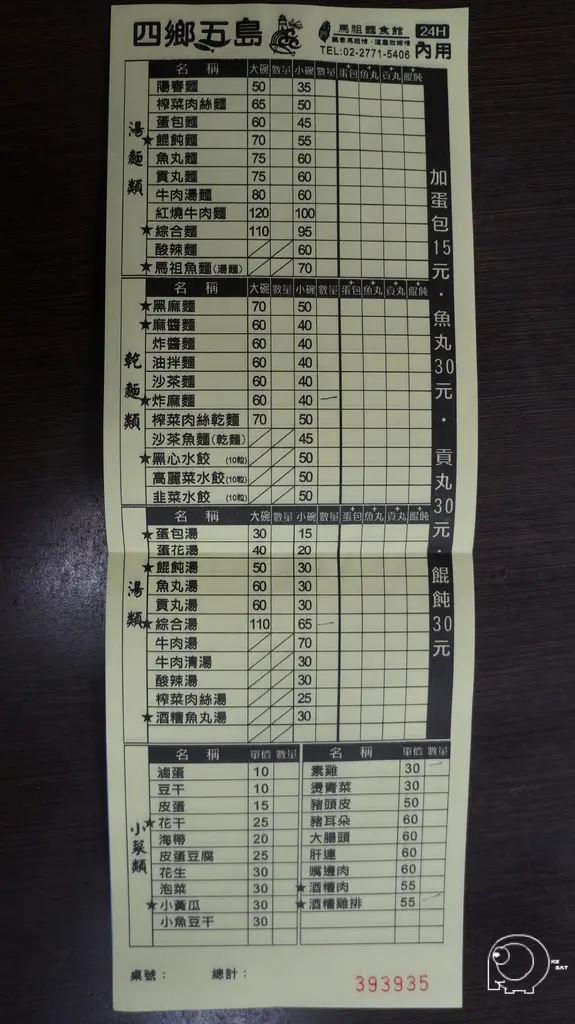 四鄉五島 馬祖麵食館 24H
TEL:02-2771-5406 內用
湯麵類
名稱 大碗 數量 小碗 數量 +蛋包 +魚丸 +貢丸 +餛飩
陽春麵 50 35
榨菜肉絲麵 65 50
蛋包麵 60 45
★餛飩麵 70 55
魚丸麵 75 60
貢丸麵 75 60
牛肉湯麵 80 60
紅燒牛肉麵 120 100
★綜合麵 110 95
酸辣麵 60
★馬祖魚麵(湯麵) 70
乾麵類
名稱 大碗 數量 小碗 數量 +蛋包 +魚丸 +貢丸 +餛飩
★黑麻麵 70 50
★麻醬麵 60 40
炸醬麵 60 40
油拌麵 60 40
沙茶麵 60 40
★炸麻麵 60 40 一
榨菜肉絲乾麵 70 50
沙茶魚麵(乾麵) 45
★黑心水餃(10粒) 50
高麗菜水餃(10粒) 50
韭菜水餃(10粒) 50
湯類
名稱 大碗 數量 小碗 數量 +蛋包 +魚丸 +貢丸 +餛飩
★蛋包湯 30 15
蛋花湯 40 20
★餛飩湯 50 30
魚丸湯 60 30
貢丸湯 60 30
★綜合湯 110 65 一
牛肉湯 70
牛肉清湯 30
酸辣湯 30
榨菜肉絲湯 25
★酒糟魚丸湯 30
加蛋包15元·魚丸30元·貢丸30元·餛飩30元
小菜類
名稱 單價 數量
滷蛋 10
豆干 10
皮蛋 15
★花干 25
海帶 20
皮蛋豆腐 25
花生 30
泡菜 30
★小黃瓜 30
小魚豆干 30
名稱 單價 數量
素雞 30 一
燙青菜 30
豬頭皮 50
豬耳朵 60
大腸頭 60
肝連 60
嘴邊肉 60
★酒糟肉 55
★酒糟雞排 55 一
桌號： 總計： 393935
ICE
EAT